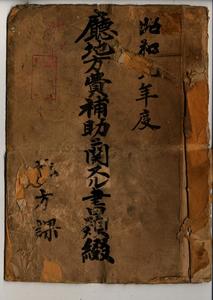 昭和八年度
廳地方費補助ニ関スル書類綴
方課